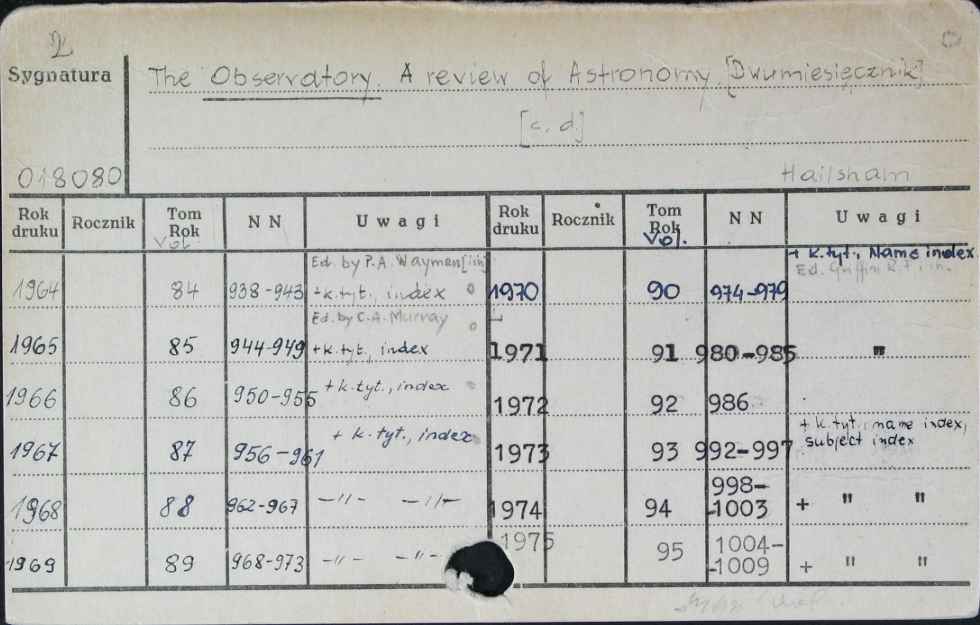 2
Sygnatura
The Observatory. A review of Astronomy [Dwumiesięcznik]
[c.d.]
018080
Hailsham
Rok druku Rocznik Tom Rok Vol. NN Uwagi Rok druku Rocznik Tom Rok Vol. NN Uwagi
1964 84 938-943 Ed. by P.A. Wayman [i in.] +k.tyt., index 1970 90 974-979 + k.tyt., Name index Ed. Griffin R.F. i in.
1965 85 944-949 Ed. by C.A. Murray +k.tyt., index 1971 91 980-985 "
1966 86 950-955 +k.tyt., index 1972 92 986
1967 87 956-961 + k.tyt., index 1973 93 992-997 + k.tyt., name index, subject index
1968 88 962-967 -"- -"- 1974 94 998-
-1003 + " "
1969 89 968-973 -"- -"- 1975 95 1004-
-1009 + " "